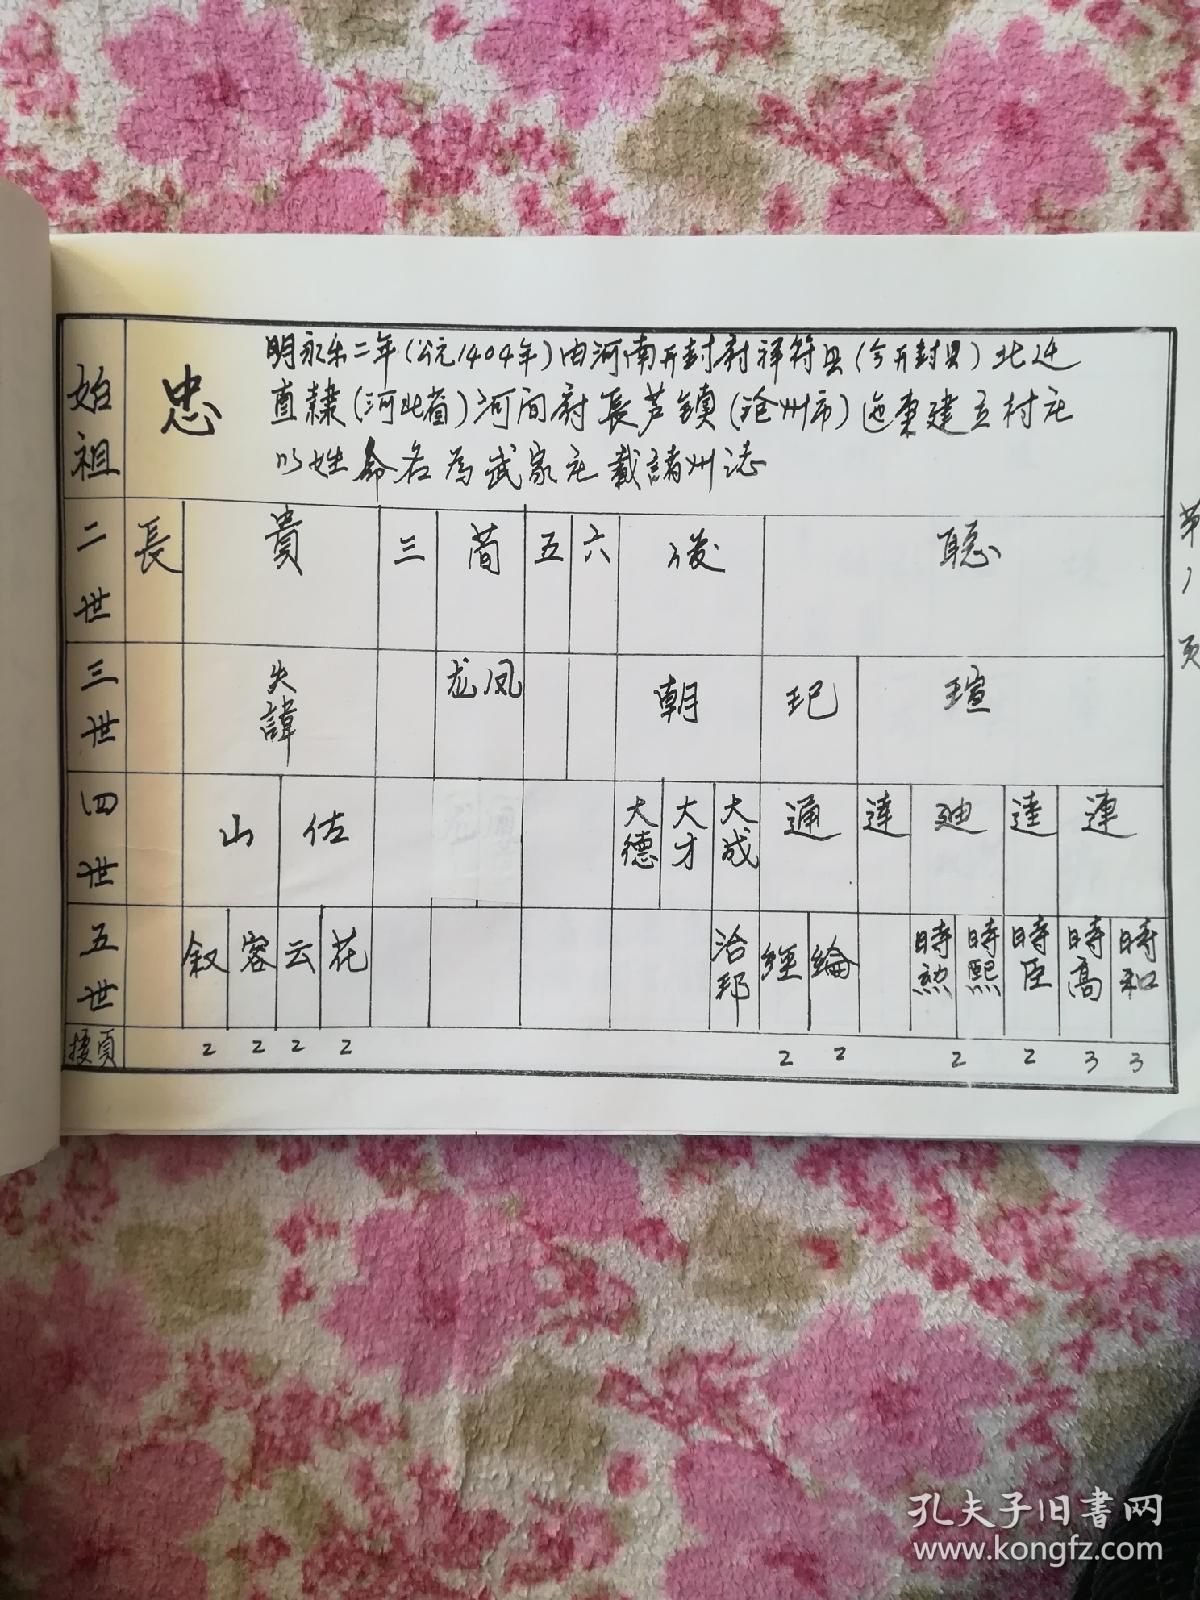 始祖 忠
明永乐二年(公元1404年)由河南开封府祥符县(今开封县)北迁
直隸(河北省)河间府長芦镇(沧州市)迤東建立村庄
以姓命名為武家庄載諸州誌
二世 長 貴 三 蕳 五 六 俊 聽
三世 失諱 龙 凤 朝 玘 瑄
四世 山 估 大德 大才 大成 通 達 廸 逵 連
五世 叙 容 云 花 治邦 經 綸 時勲 時熙 時臣 時高 時和
接頁 2 2 2 2 2 2 2 2 3 3
第1页
孔夫子旧書网
www.kongfz.com